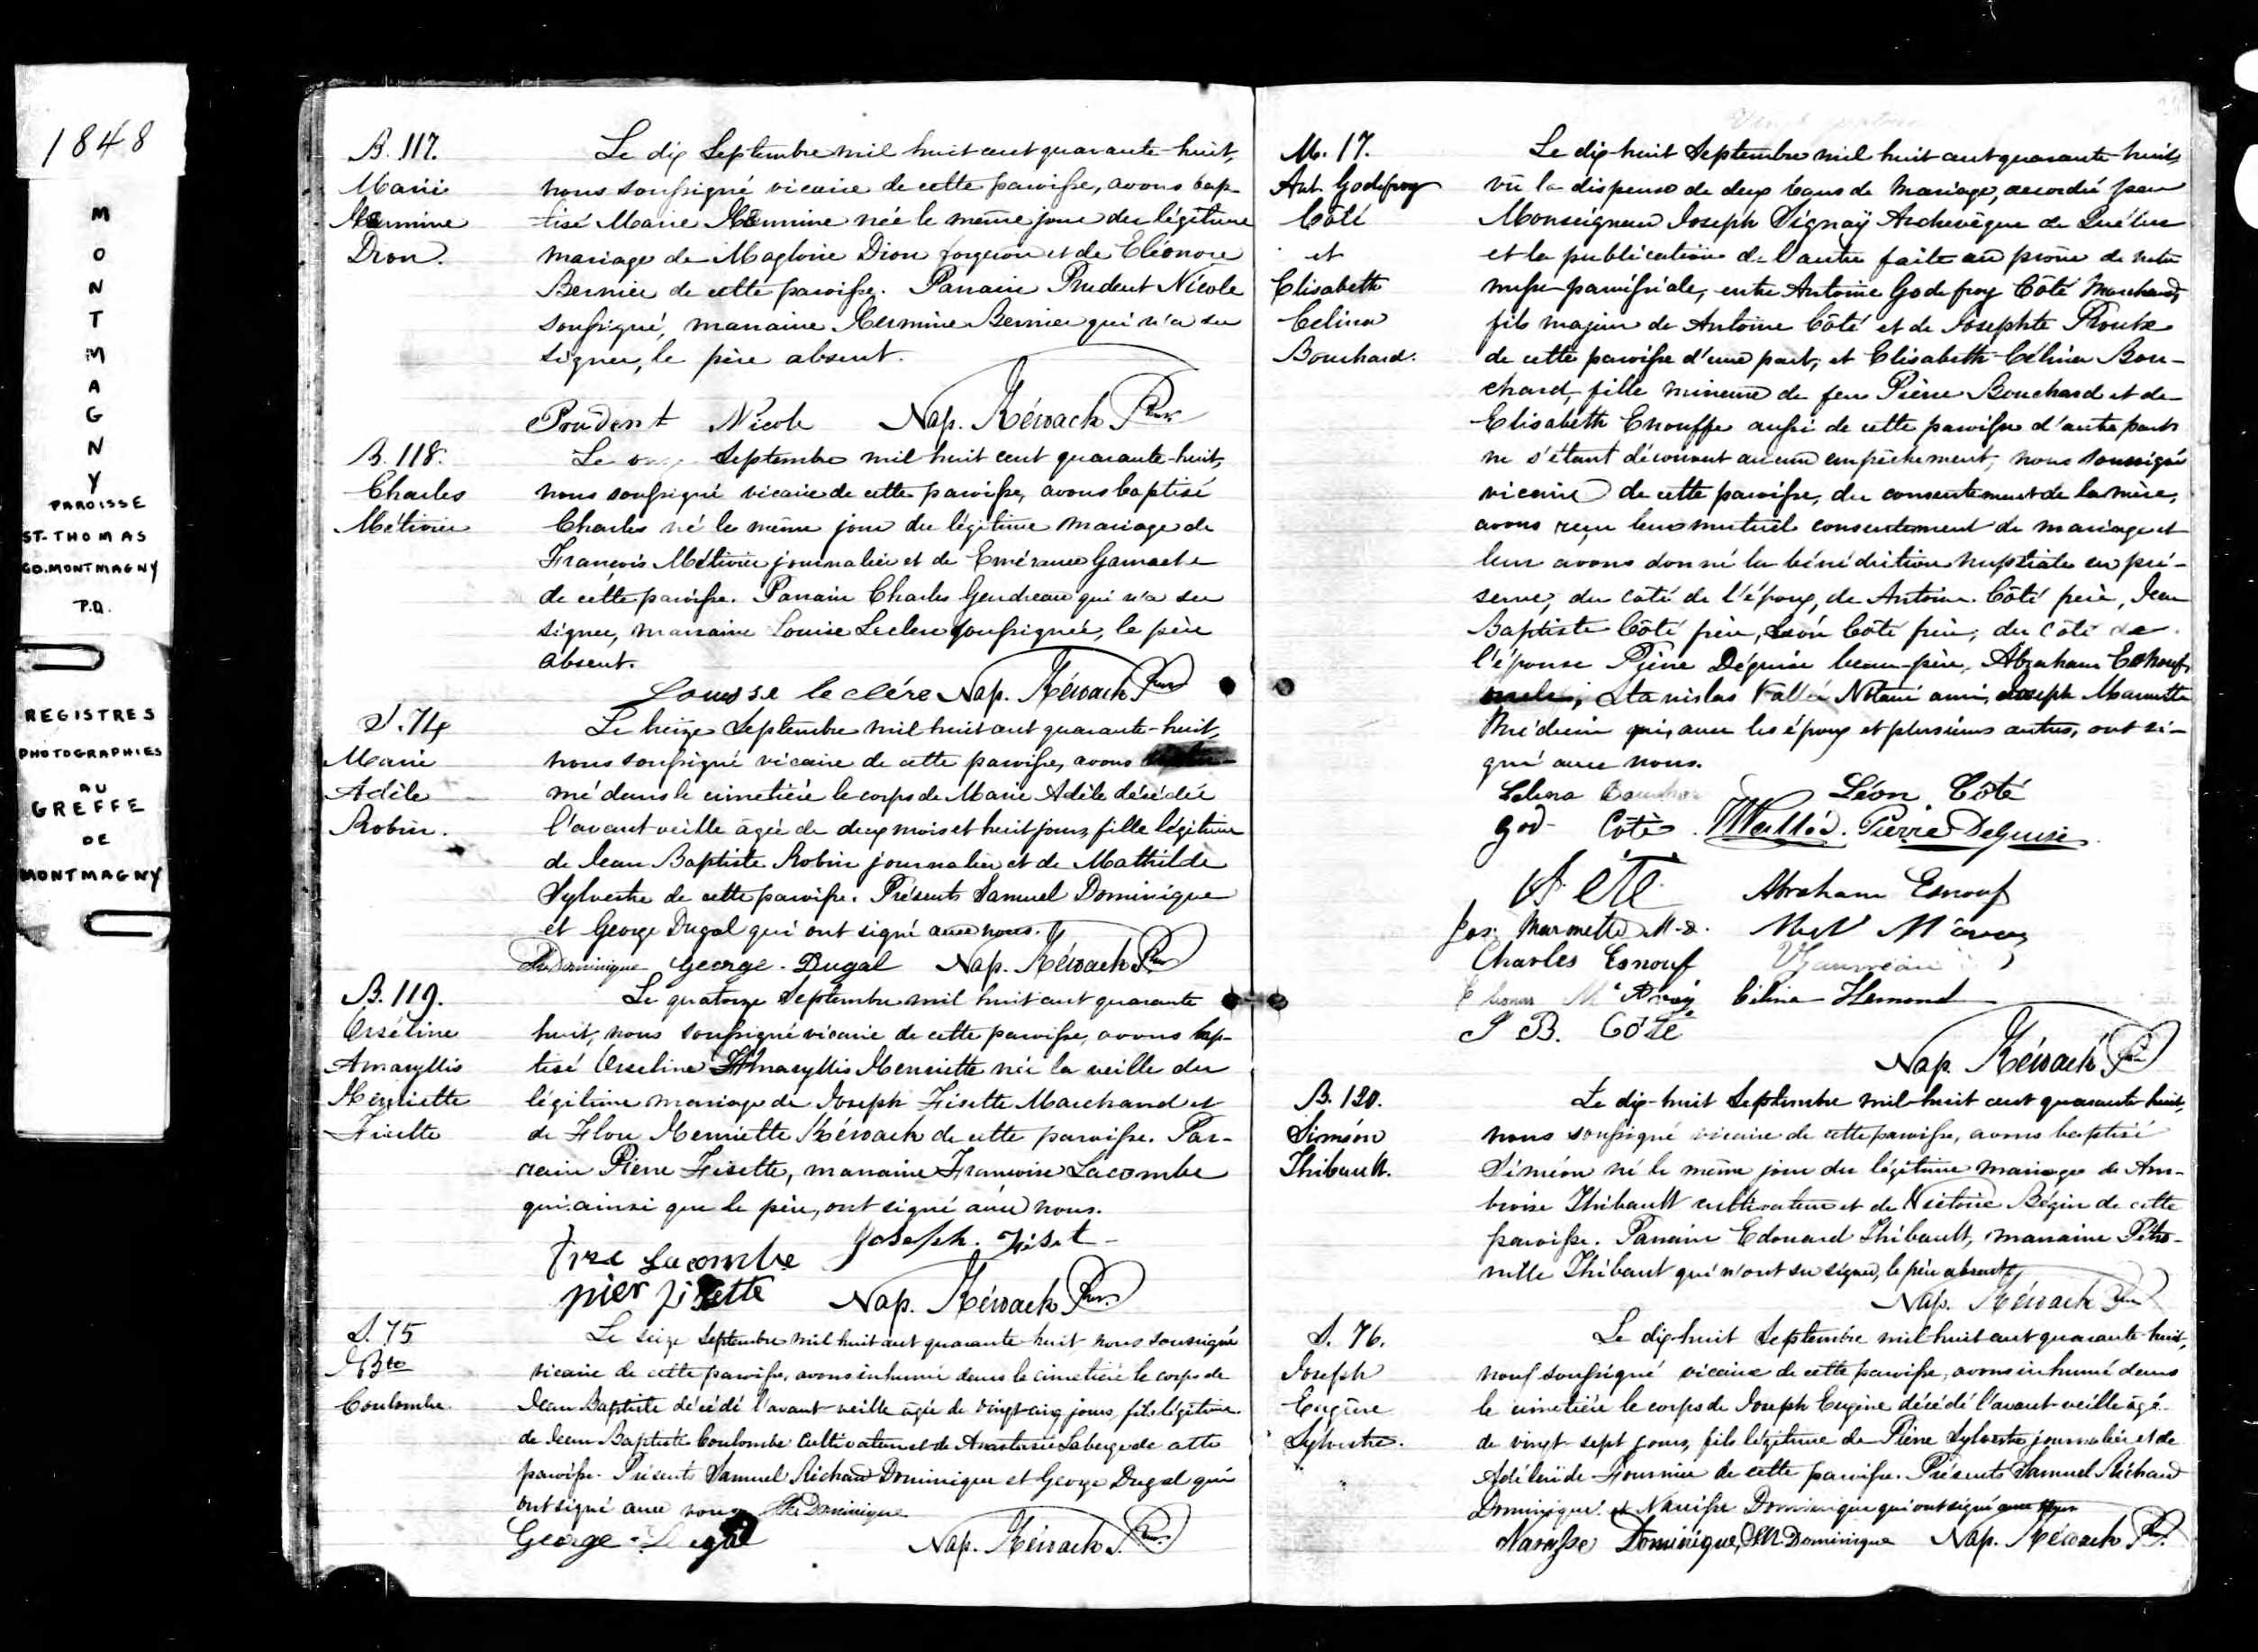 1848
MONTMAGNY
PAROISSE
ST-THOMAS
CO. MONTMAGNY
P.Q.
REGISTRES
PHOTOGRAPHIES
AU
GREFFE
DE
MONTMAGNY
B. 117.
Marie
Hermine
Dion.
Le dix Septembre mil huit cent quarante-huit,
nous soussigné vicaire de cette paroisse, avons bap-
tisé Marie Hermine née le même jour du légitime
mariage de Magloire Dion forgeron et de Eléonore
Bernier de cette paroisse. Parrain Prudent Nicole
soussigné, marraine Hermine Bernier qui n'a su
signer, le père absent.
Prudent Nicole Nap. Kéroack Ptre
B. 118.
Charles
Métivier
Le onze Septembre mil huit cent quarante-huit,
nous soussigné vicaire de cette paroisse, avons baptisé
Charles né le même jour du légitime mariage de
François Métivier journalier et de Emérance Gamache
de cette paroisse. Parrain Charles Gendreau qui n'a su
signer, marraine Louise Leclerc soussignée, le père
absent.
Louisse leclére Nap. Kéroack Ptre
S. 74
Marie
Adèle
Robin.
Le treize Septembre mil huit cent quarante-huit,
nous soussigné vicaire de cette paroisse, avons
mé dans le cimetière le corps de Marie Adèle décédée
l'avant-veille âgée de deux mois et huit jours, fille légitime
de Jean Baptiste Robin journalier et de Mathilde
Sylvestre de cette paroisse. Présents Samuel Dominique
et George Dugal qui ont signé avec nous.
Dominique George Dugal Nap. Kéroack Ptre
B. 119.
Orséline
Amaryllis
Henriette
Fisette
Le quatorze Septembre mil huit cent quarante
huit, nous soussigné vicaire de cette paroisse, avons bap-
tisé Orseline Amaryllis Henriette née la veille du
légitime mariage de Joseph Fisette Marchand et
de Flore Henriette Kéroack de cette paroisse. Par-
rain Pierre Fisette, marraine Françoise Lacombe
qui ainsi que le père, ont signé avec nous.
Frse Lacombe Joseph. Fiset
pier fisette Nap. Kéroack Ptre.
S. 75
J. Bte
Coulombe.
Le seize Septembre mil huit cent quarante huit nous soussigné
vicaire de cette paroisse, avons inhumé dans le cimetière le corps de
Jean Baptiste décédé l'avant-veille âgé de vingt-cinq jours, fils légitime
de Jean Baptiste Coulombe Cultivateur et de Anastasie Laberge de cette
paroisse. Présents Samuel Richard Dominique et George Dugal qui
ont signé avec nous Dominique
George Dugal Nap. Kéroack Ptre.
M. 17.
Ant. Godefroy
Côté
et
Elisabeth
Celina
Bouchard.
Le dix-huit Septembre mil huit cent quarante-huit,
vû la dispense de deux bans de mariage, accordée par
Monseigneur Joseph Signaÿ Archevêque de Québec
et la publication de l'autre faite au prône de notre
messe paroissiale, entre Antoine Godefroy Côté Marchand,
fils majeur de Antoine Côté et de Josephte Proulx
de cette paroisse d'une part, et Elisabeth Célina Bou-
chard, fille mineure de feu Pierre Bouchard et de
Elisabeth Enouffe aussi de cette paroisse d'autre part
ne s'étant découvert aucun empêchement, nous soussigné
vicaire de cette paroisse, du consentement de la mère,
avons reçu leur mutuel consentement de mariage et
leur avons donné la bénédiction nuptiale en pré-
sence, du côté de l'époux, de Antoine Côté père, Jean
Baptiste Côté frère, Léon Côté frère, du côté de
l'épouse Pierre Déguise beau-père, Abraham Esnouf,
oncle, Stanislas Vallée Notaire ami, Joseph Marmette
Médecin qui, avec les époux et plusieurs autres, ont si-
gné avec nous.
Celina Bouchar Léon Côté
God- Côté. Vallée. Pierre Deguise
Abraham Esnouf
Jos. Marmette M.D.
Charles Esnouf
Célina Hamond
J B. Côté
Nap. Kéroack Ptre
B. 120.
Siméon
Thibault.
Le dix-huit Septembre mil huit cent quarante-huit,
nous soussigné vicaire de cette paroisse, avons baptisé
Siméon né le même jour du légitime mariage de Am-
broise Thibault cultivateur et de Victoire Bégin de cette
paroisse. Parrain Edouard Thibault, marraine Pétro-
nille Thibault qui n'ont su signer, le père absent.
Nap. Kéroack Ptre
S. 76.
Joseph
Eugène
Sylvestre.
Le dix-huit Septembre mil huit cent quarante-huit,
nous soussigné vicaire de cette paroisse, avons inhumé dans
le cimetière le corps de Joseph Eugène décédé l'avant-veille âgé
de vingt-sept jours, fils légitime de Pierre Sylvestre journalier et de
Adélaïde Fournier de cette paroisse. Présents Samuel Richard
Dominique et Narcisse Dominique qui ont signé avec nous
Narcisse Dominique, S.R. Dominique Nap. Kéroack Ptre.